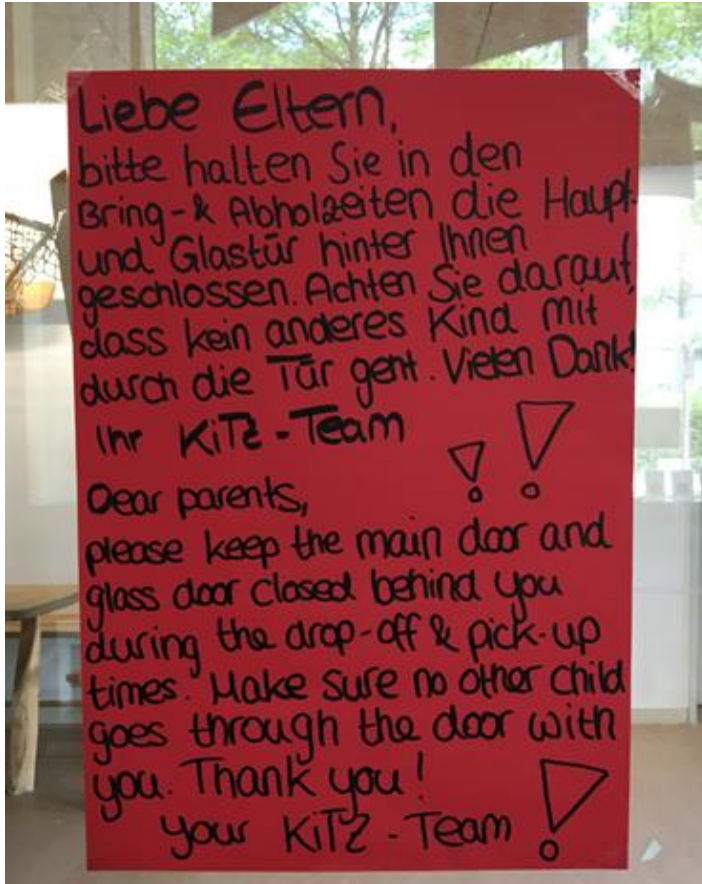 Liebe Eltern,
bitte halten Sie in den
Bring-& Abholzeiten die Haupt-
und Glastür hinter Ihnen
geschlossen. Achten Sie darauf,
dass kein anderes Kind mit
durch die Tür geht. Vielen Dank!
Ihr KiTZ-Team
!!
Dear parents,
please keep the main door and
glass door closed behind you
during the drop-off & pick-up
times. Make sure no other child
goes through the door with
you. Thank you!
your KiTZ-Team !